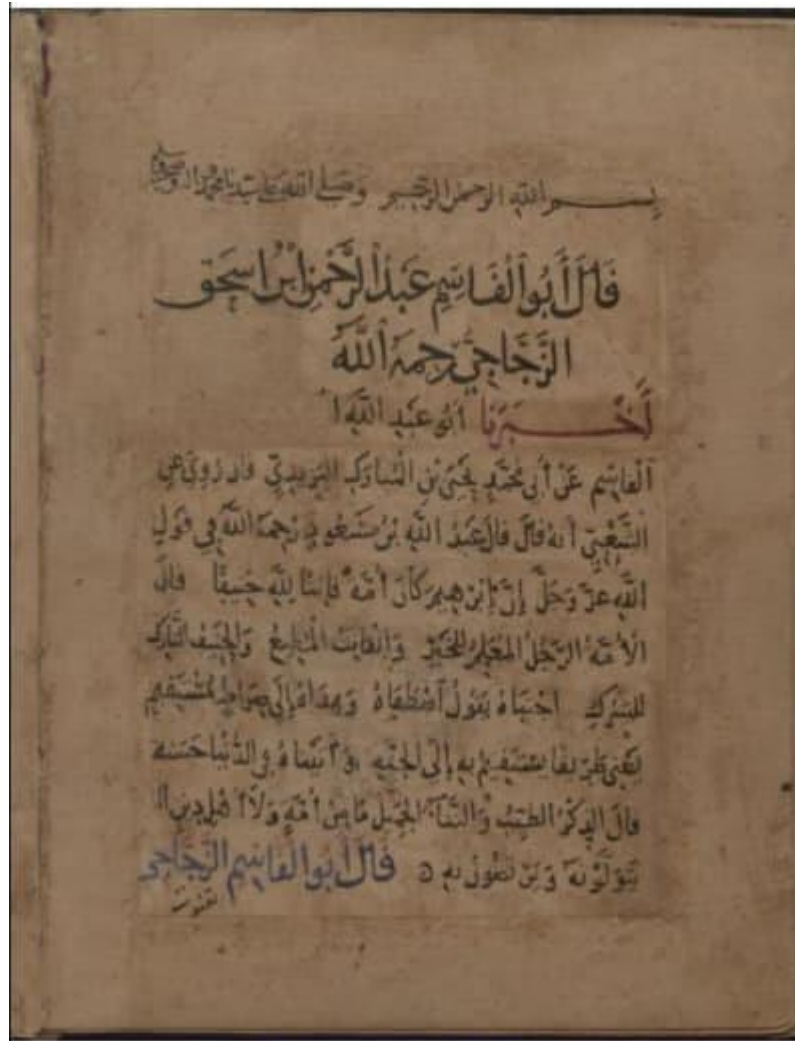 بسم الله الرحمن الرحيم وصلى الله على سيدنا محمد وآله وصحبه
قَالَ أَبُو الْقَاسِمِ عَبْدُ الرَّحْمٰنِ ابْنُ اسحق
الزَّجَّاجِيُّ رَحِمَهُ اللَّهُ
أَخْبَرَنَا أبو عبد الله ا
القاسم عن أبي محمد يحيى بن المبارك اليزيدي قال روي عن
الشعبي أنه قال قال عبد الله بن مسعود رحمه الله في قول
الله عز وجل إن إبرهيم كان أمة قانتا لله حنيفا قال
الأمة الرجل المعلم للخير والقانت المطيع والحنيف التارك
للشرك اجتباه يقول اصطفاه وهداه إلى صراط مستقيم
يعني طريقا يستقيم به إلى الجنة وآتيناه في الدنيا حسنة
قال الذكر الطيب والثناء الجميل ما من أمة ولا أهل دين إلا
يتولونه ويرضون به قال أبو القاسم الزجاجي